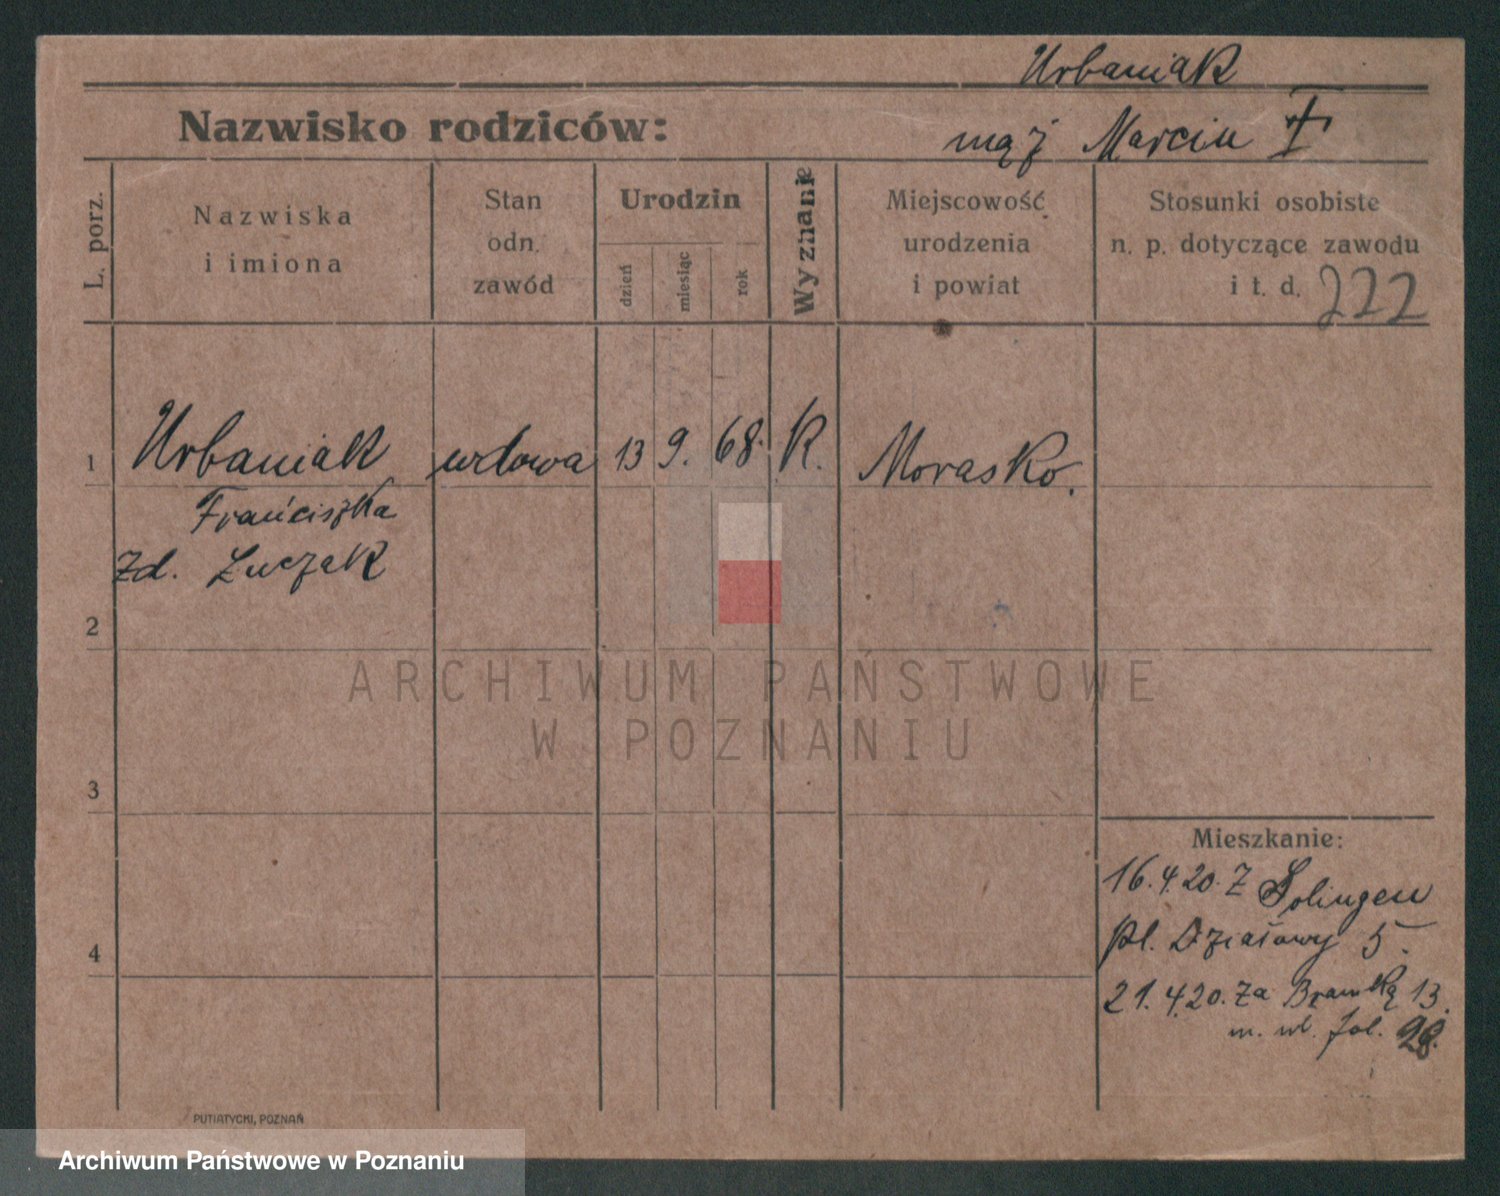 Urbaniak
Nazwisko rodziców:
mąż Marcin
L. porz.
Nazwiska
i imiona
Stan
odn.
zawód
Urodzin
dzień
miesiąc
rok
Wyznanie
Miejscowość
urodzenia
i powiat
Stosunki osobiste
n. p. dotyczące zawodu
i t. d.
222
1
Urbaniak wdowa 13 9. 68. K. Morasko.
Franciszka
zd. Luczak
2
ARCHIWUM PAŃSTWOWE
W POZNANIU
3
Mieszkanie:
16.4.20. Z Solingen
pl. Działowy 5.
4
21.4.20. Za Bramką 13.
m. wł. 28.
PUTIATYCKI, POZNAŃ
Archiwum Państwowe w Poznaniu